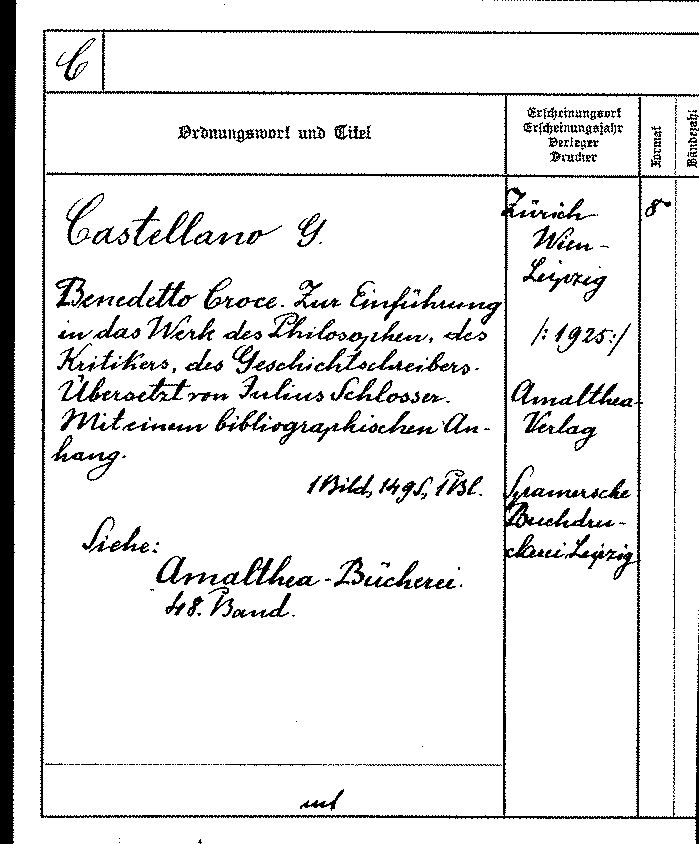 C
Ordnungswort und Titel
Erscheinungsort
Erscheinungsjahr
Verleger
Drucker
Format
Bändezahl
Castellano G.
Benedetto Croce. Zur Einführung
in das Werk des Philosophen, des
Kritikers, des Geschichtschreibers.
Übersetzt von Julius Schlosser.
Mit einem bibliographischen An-
hang.
1 Bild, 149 S, 1 Bl.
Siehe:
Amalthea-Bücherei.
48. Band.
Zürich
Wien-
Leipzig
/: 1925 :/
Amalthea-
Verlag
Spamersche
Buchdru-
ckerei Leipzig
8°